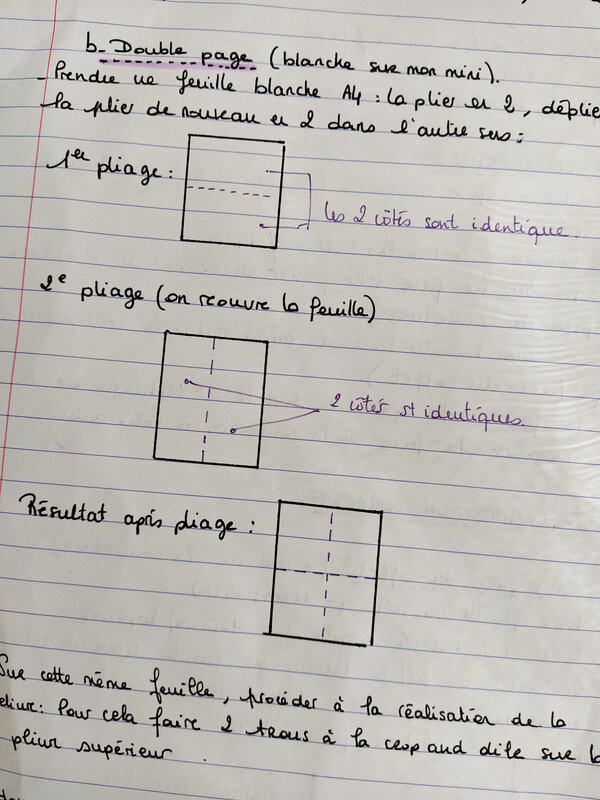 b- Double page (blanche sur mon mini).
- Prendre une feuille blanche A4 : la plier en 2, déplier
la plier de nouveau en 2 dans l'autre sens :
1er pliage :
les 2 côtés sont identique.
2e pliage (on réouvre la feuille)
2 côtés st identiques.
Résultat après pliage :
Sur cette même feuille, procéder à la réalisation de la
reliure : Pour cela faire 2 trous à la crop and dile sur la
pliure supérieur.